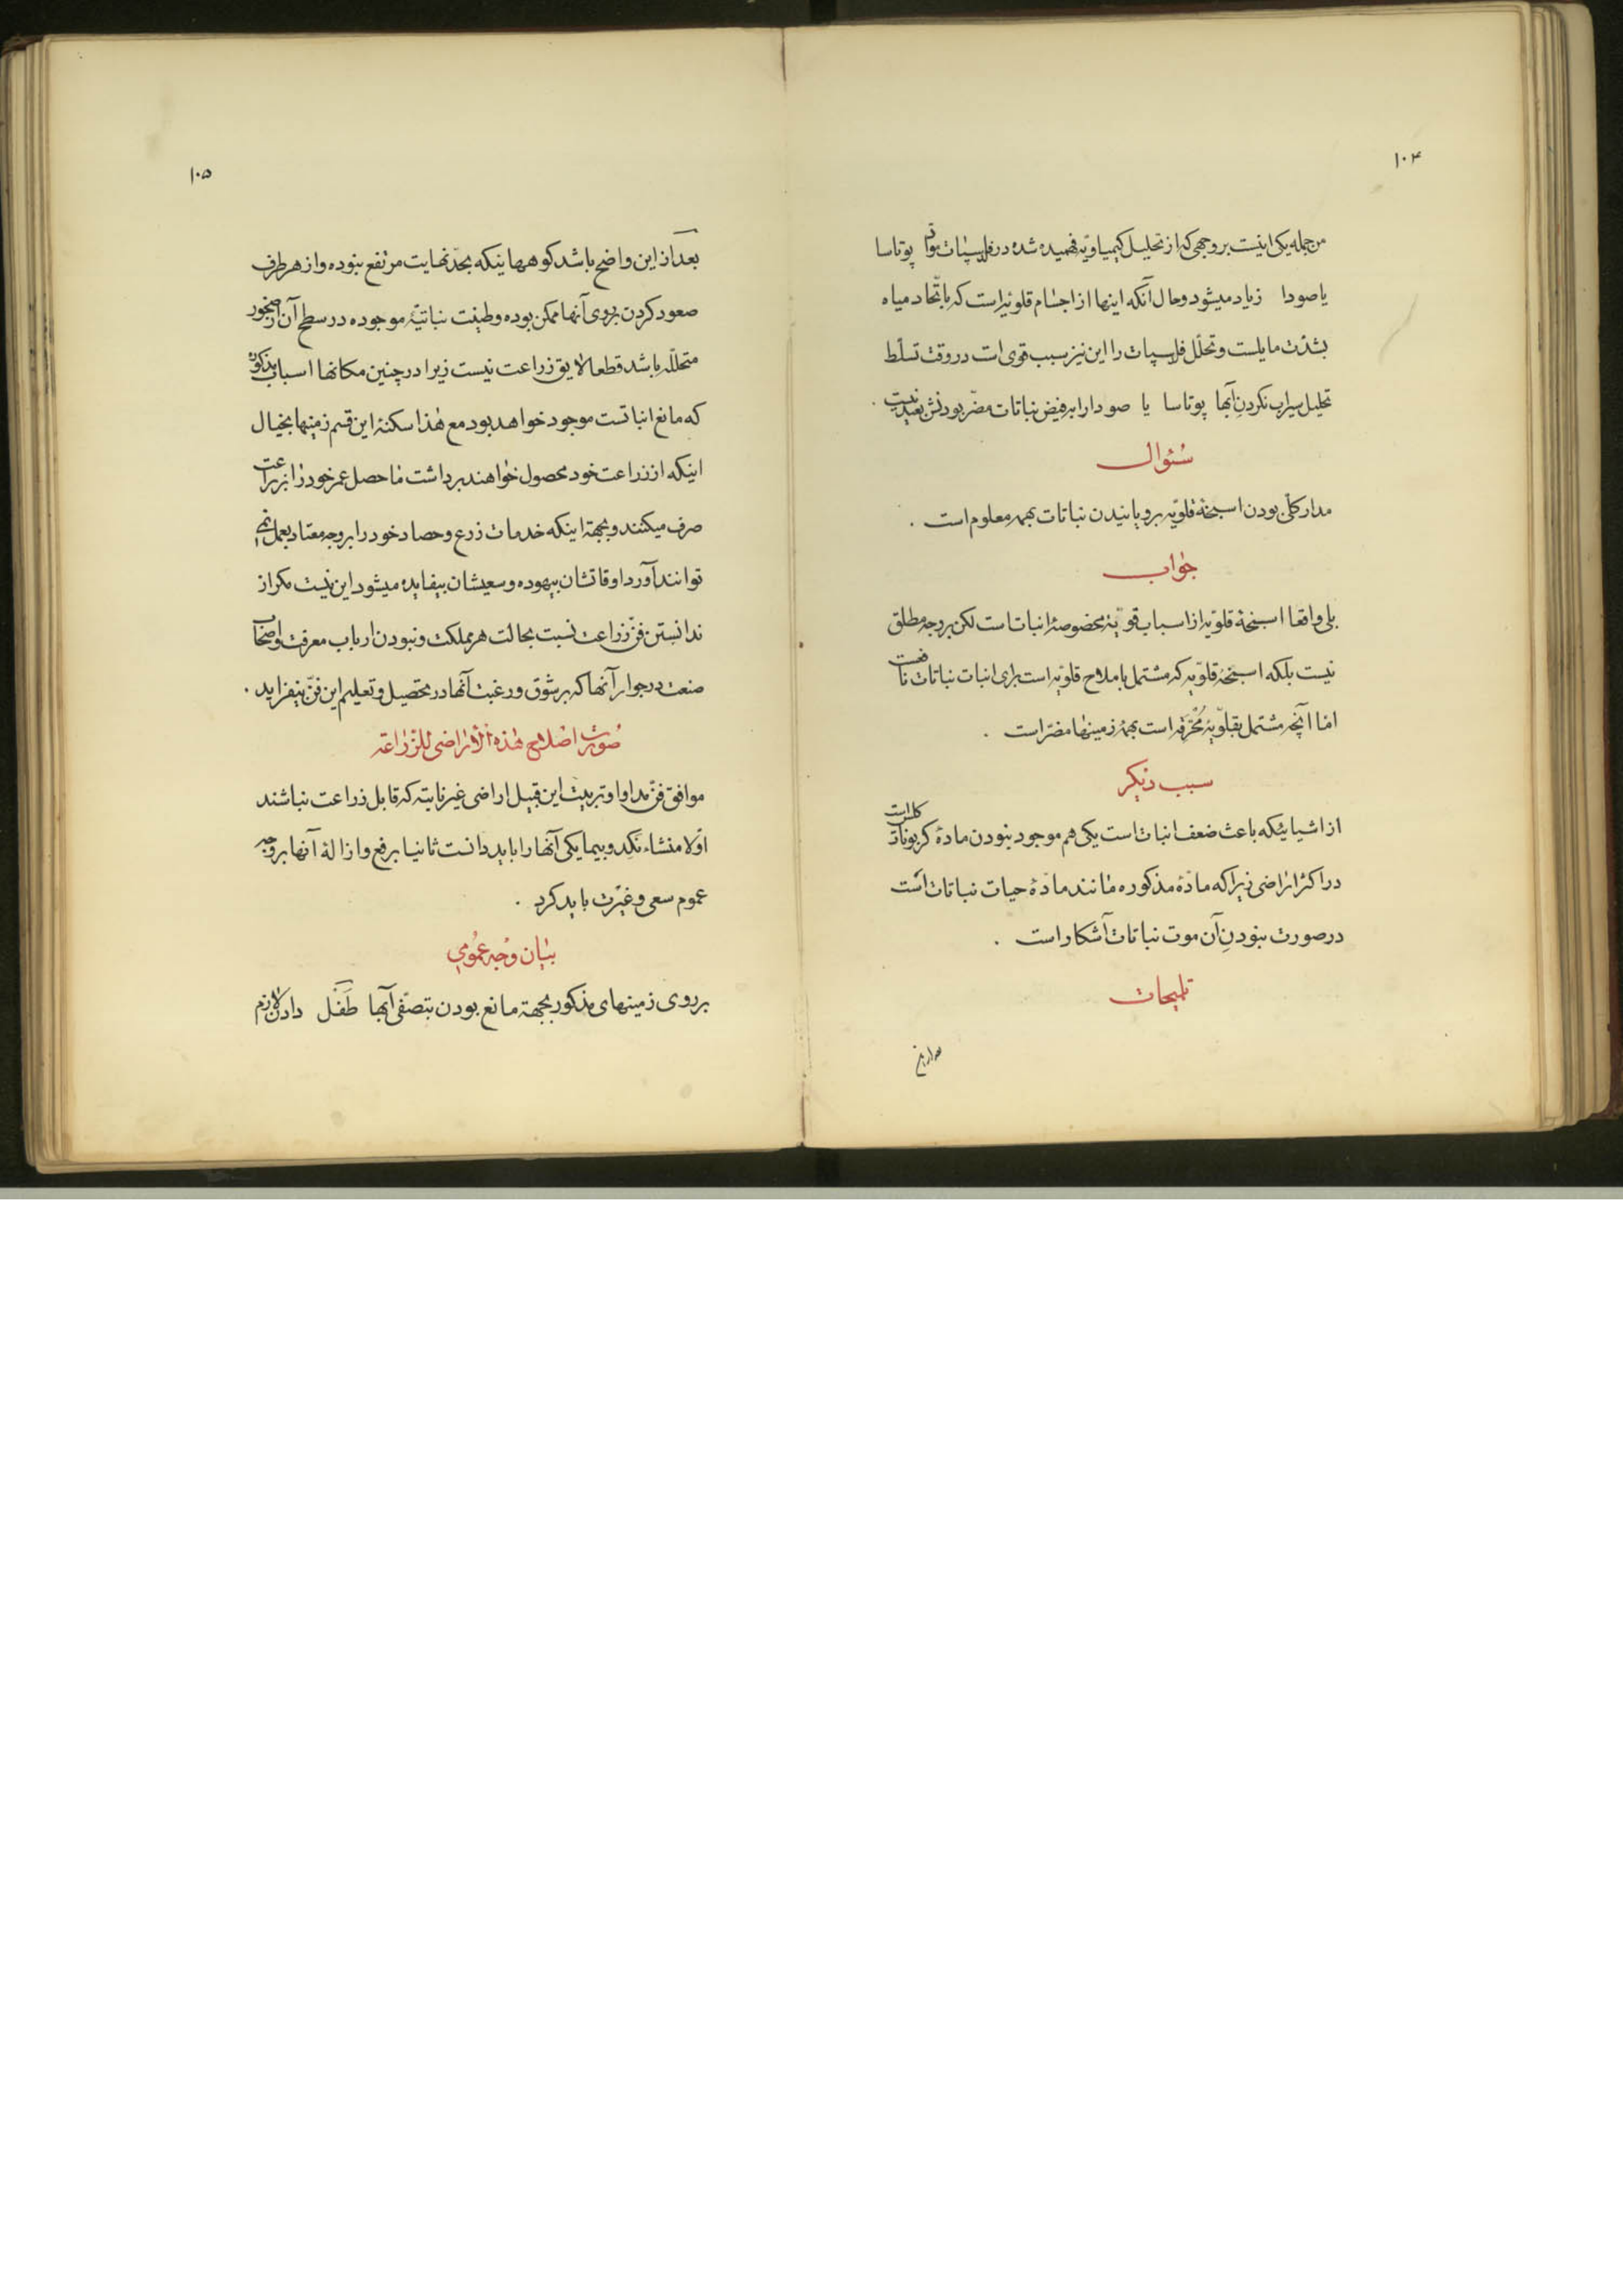 ۱۰۴
من جمله یکی اینست بر وجهی که از تحلیل کیمیاویه فهمیده شده در فلسپات مواد پوتاسا
یا صودا زیاد میشود و حال آنکه اینها از اجسام قلویه است که باتّحاد میاه
بشدّت مایلست و تحلّل فلسپات را این نیز سبب قوی است در وقت تسلّط
تحلیل سیراب نکردن آبها پوتاسا یا صودا را به فیض نباتات مضرّ بودنش بعید نیست .
سئوال
مدار کلّی بودن اسبخهٔ قلویّه برویانیدن نباتات بهمه معلوم است .
جواب
بلی واقعا اسبخهٔ قلویّه از اسباب قویّهٔ مخصوصهٔ انباتست لکن بر وجه مطلق
نیست بلکه اسبخهٔ قلویّه که مشتمل باملاح قلویّه است برای انبات نباتات نافعست
امّا آنچه مشتمل بقلویّهٔ محرّقه است بهمهٔ زمینها مضرّ است .
سبب دیگر
از اشیائیکه باعث ضعف انبات است یکی هم موجود نبودن مادهٔ کربونات کلس است
در اکثر اراضی زیرا که مادّهٔ مذکوره مانند مادّهٔ حیات نباتات است
در صورت نبودن آن موت نباتات آشکار است .
تلمیحات
۱۰۵
بعد از این واضح باشد کوههاییکه بحدّ نهایت مرتفع نبوده و از هر طرف
صعود کردن بروی آنها ممکن بوده و طینت نباتیّهٔ موجوده در سطح آن از صخور
متحلّله باشد قطعا لایق زراعت نیست زیرا در چنین مکانها اسباب مذکوره
که مانع انباتست موجود خواهد بود مع هذا سکنهٔ این قسم زمینها بخیال
اینکه از زراعت خود محصول خواهند برداشت ماحصل عمر خود را بزراعت
صرف میکنند و بجهة اینکه خدمات زرع و حصاد خود را بر وجه معتاد بعمل نمی
توانند آورد اوقاتشان بیهوده و سعیشان بیفایده میشود این نیست مگر از
ندانستن فنّ زراعت نسبت بحالت هر مملکت و نبودن ارباب معرفت و اصحاب
صنعت در جوار آنها که بر شوق و رغبت آنها در تحصیل و تعلیم این فنّ بیفزاید .
صورت اصلاح هذه الأراضی للزّراعة
موافق فنّ مداوا و تربیت این قبیل اراضی غیر نابته که قابل زراعت نباشند
اوّلا منشاء آنها را باید دانست ثانیا برفع و ازالهٔ آنها بر وجه
عموم سعی و غیرت باید کرد .
بیان وجه عمومی
بر روی زمینهای مذکور بجهة مانع بودن بتصفّی آبها طَفَل دادن لازم